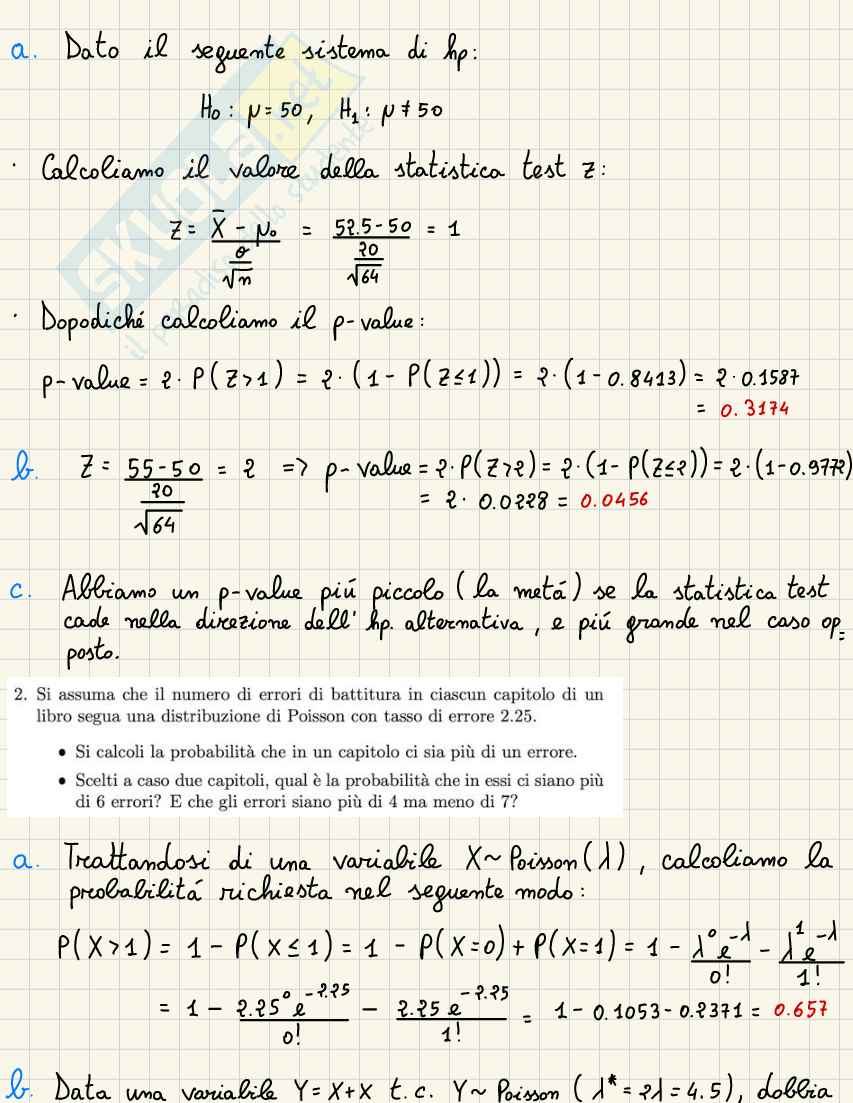 a. Dato il seguente sistema di hp:
H₀ : μ = 50, H₁ : μ ≠ 50
· Calcoliamo il valore della statistica test z:
Z = (X̄ - μ₀)/(σ/√n) = (52.5-50)/(20/√64) = 1
· Dopodiché calcoliamo il p-value:
p-value = 2 · P(Z>1) = 2 · (1 - P(Z≤1)) = 2 · (1-0.8413) = 2 · 0.1587
= 0.3174
b. Z = (55-50)/(20/√64) = 2 => p-value = 2·P(Z>2) = 2·(1-P(Z≤2)) = 2·(1-0.9772)
= 2 · 0.0228 = 0.0456
c. Abbiamo un p-value piú piccolo (la metá) se la statistica test
cade nella direzione dell' hp. alternativa, e piú grande nel caso op=
posto.
2. Si assuma che il numero di errori di battitura in ciascun capitolo di un
libro segua una distribuzione di Poisson con tasso di errore 2.25.
• Si calcoli la probabilità che in un capitolo ci sia più di un errore.
• Scelti a caso due capitoli, qual è la probabilità che in essi ci siano più
di 6 errori? E che gli errori siano più di 4 ma meno di 7?
a. Trattandosi di una variabile X~Poisson(λ), calcoliamo la
probabilitá richiesta nel seguente modo:
P(X>1) = 1 - P(X≤1) = 1 - P(X=0) + P(X=1) = 1 - λ⁰e^-λ/0! - λ¹e^-λ/1!
= 1 - 2.25⁰e^-2.25/0! - 2.25 e^-2.25/1! = 1-0.1053-0.2371 = 0.657
b. Data una variabile Y=X+X t.c. Y~Poisson (λ* = 2λ = 4.5), dobbia
SKUOLA.net
il paradiso dello studente